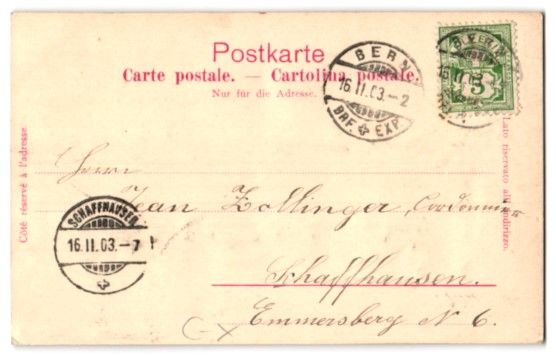 Postkarte
Carte postale. — Cartolina postale.
Nur für die Adresse.
BERN
16.II.03.-2
BRF. EXP.
BERN
16.II.03
5
Côté réservé à l'adresse
Lato riservato all'indirizzo.
Herrn
Jean Zollinger, Cordonnier
SCHAFFHAUSEN
16.II.03.-7
Schaffhausen.
Emmersberg N 6.